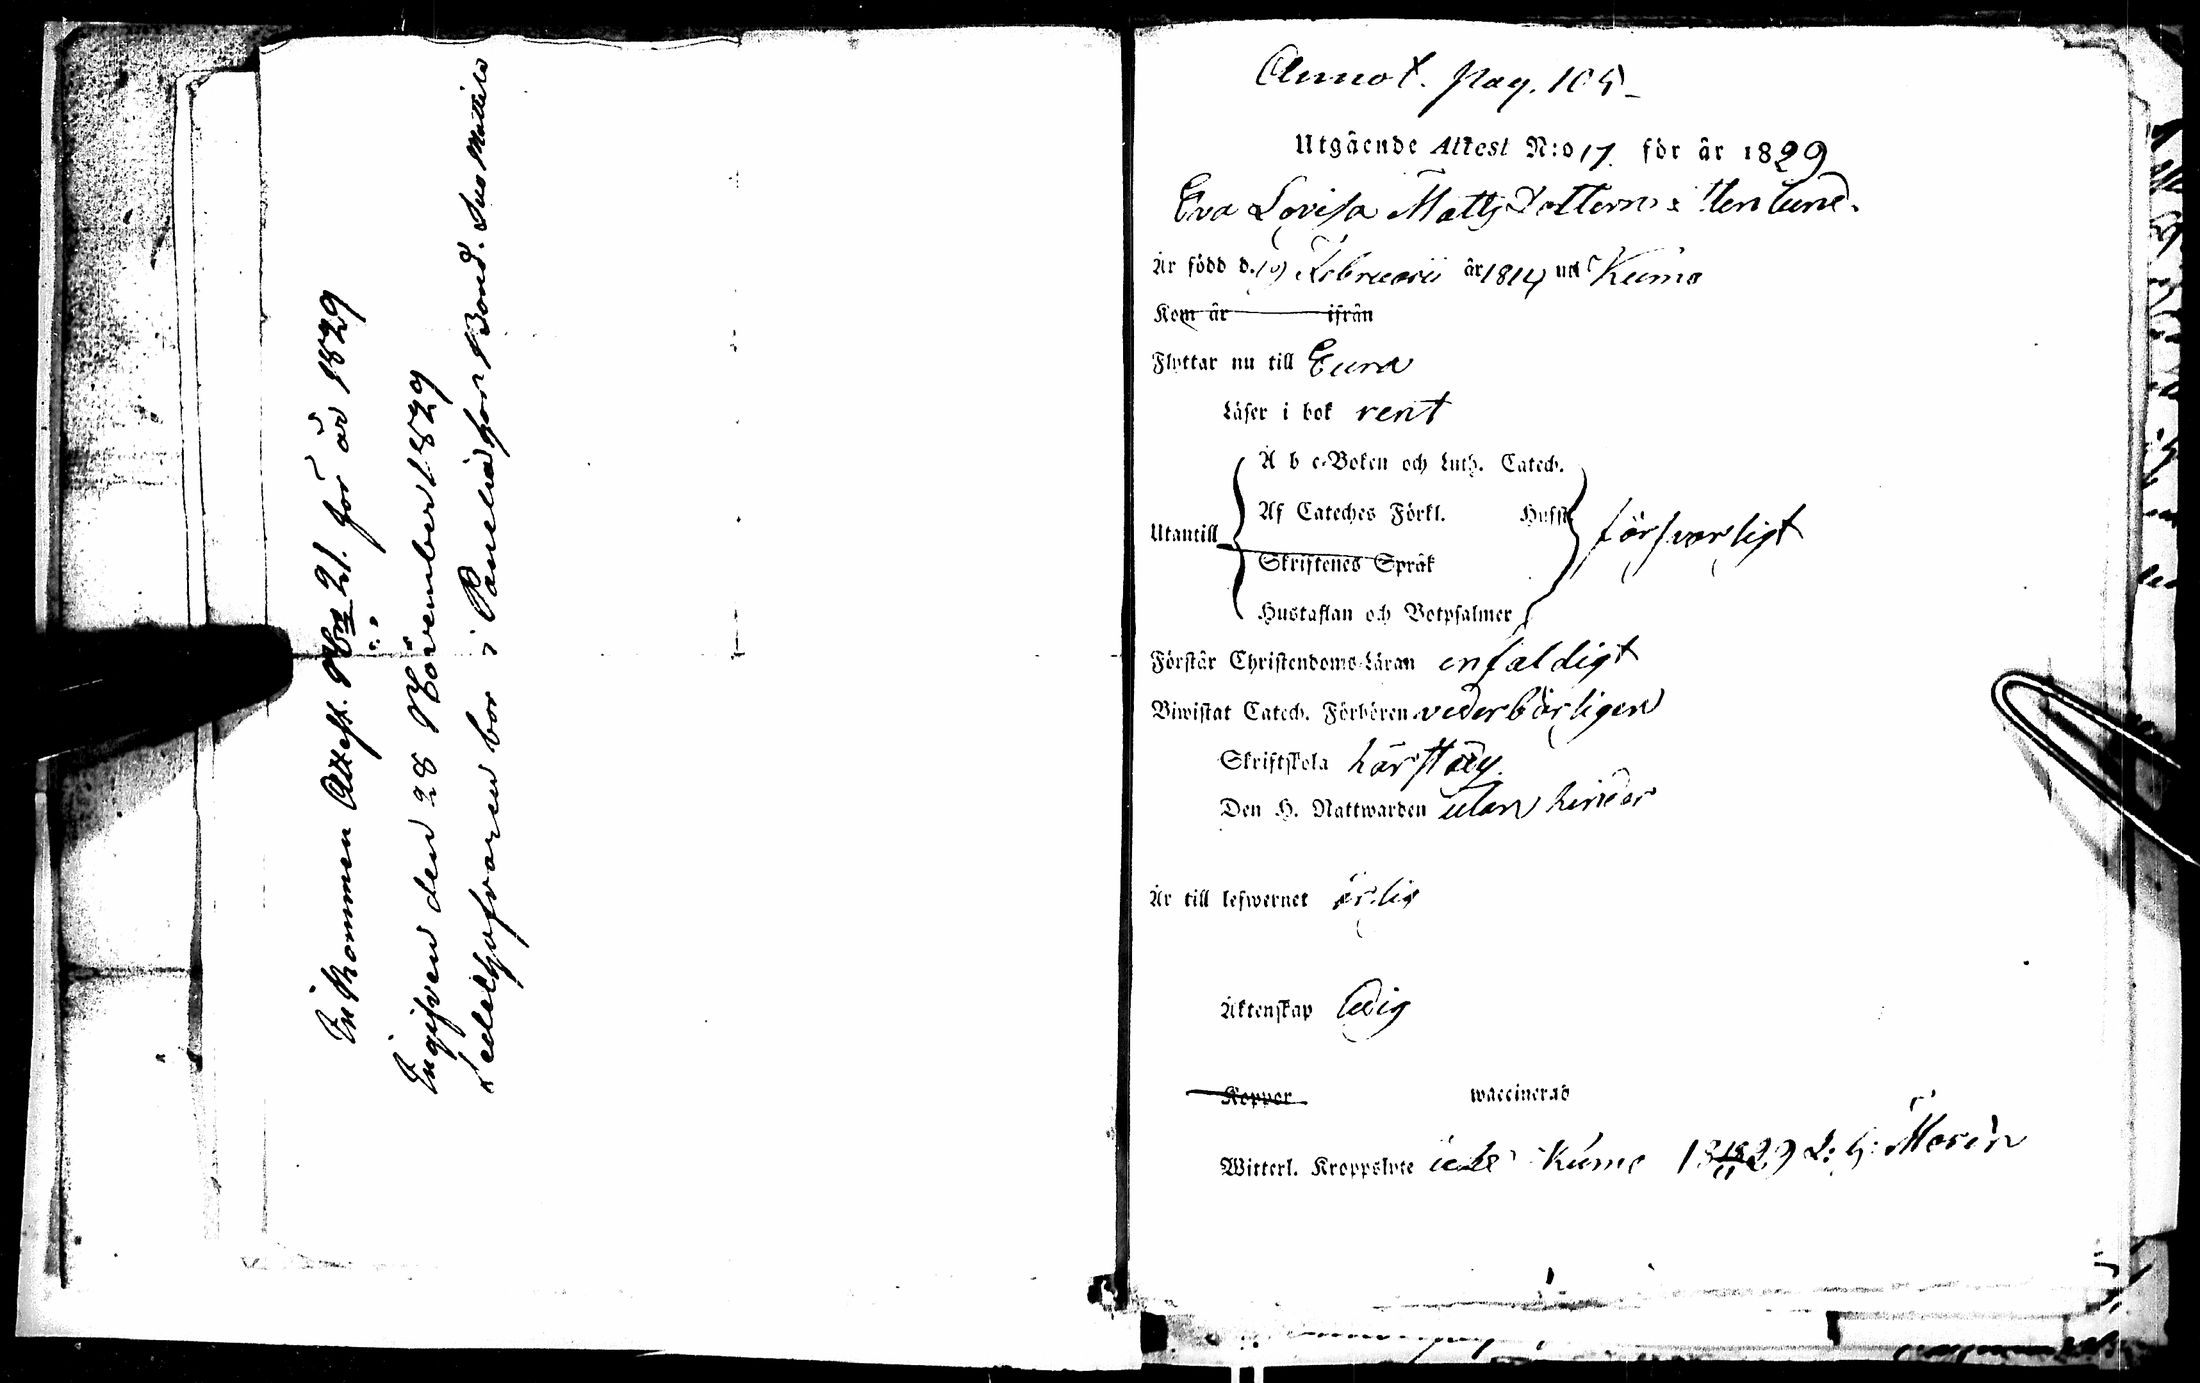 Inkommen Attest. N:ro 21. för år 1829
Ingifven den 28 November 1829
Sedelgifvaren bor i Panelia hos Bond.
Annot. pag. 105
Utgående Attest N:o 17. för år 1829
Eva Lovisa Matts Dotter Stenlund.
Är född d. 19 Februarii år 1814 uti Kumo
Kom år ifrån
Flyttar nu till Eura
Läser i bok rent
A b c-Boken och Luth. Catech.
Af Cateches Förkl. Hufst
Utantill försvarligt
Skriftenes Språk
Hustaflan och Botpsalmer
Förstår Christendoms-Läran enfaldigt
Biwistat Catech. Förhören vederbörligen
Skriftskola härstäds
Den H. Nattwarden utan hinder
Är till lefwernet ärlig
Äktenskap ledig
Koppor waccinerad
Witterl. Kroppslyte icke Kumo 18 18/11 29 Morén